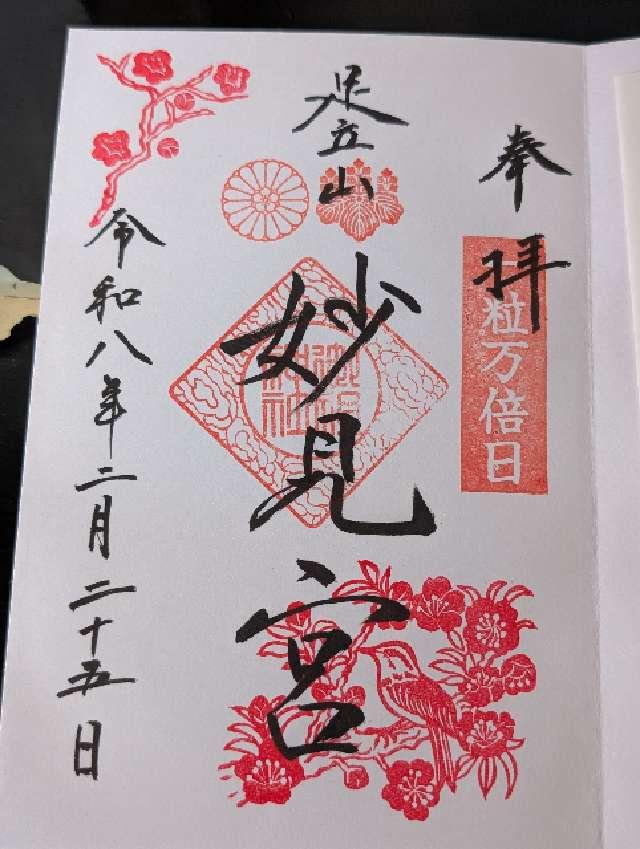 奉拝
一粒万倍日
足立山
妙見宮
令和八年二月二十五日